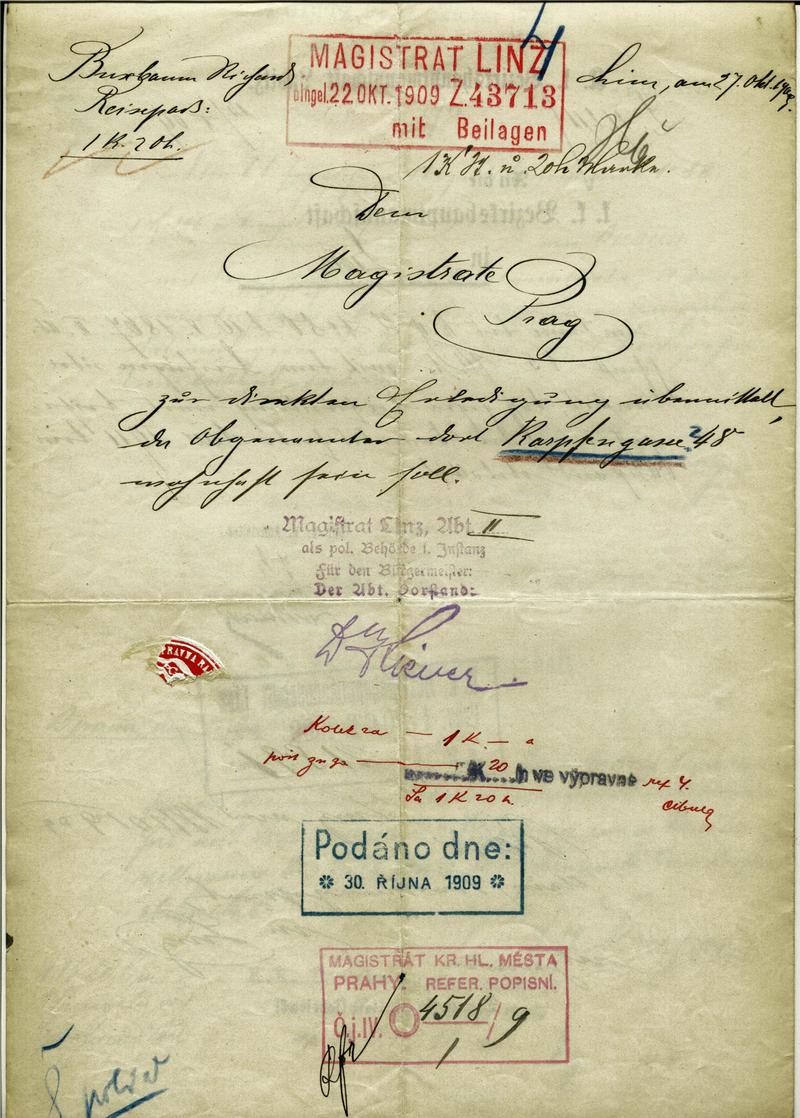 Buxbaum Richard
Reisepass:
1 K. 20h.
MAGISTRAT LINZ
eingel. 22 OKT. 1909 Z. 43713
mit Beilagen
Linz, am 27. Okt. 1909.
1 K St. u. 20h Marke.
Dem
Magistrate
Prag
zur direkten Erledigung übermittelt,
da Obgenannter dort Karpfengasse 48
wohnhaft sein soll.
Magistrat Linz, Abt. II
als pol. Behörde I. Instanz
Für den Bürgermeister:
Der Abt. Vorstand:
Kolek za — 1 K —
K 20 h ve výpravně
Sa 1 K 20 h
Podáno dne:
* 30. ŘÍJNA 1909 *
MAGISTRÁT KR. HL. MĚSTA
PRAHY. REFER. POPISNÍ.
Č.j. IV. 4518/9
1